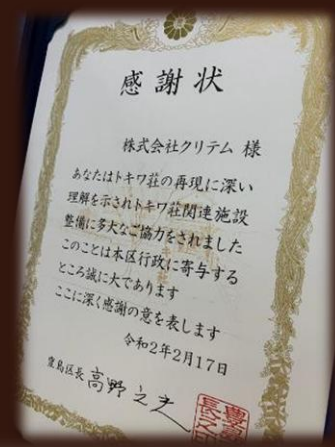 感謝状
株式会社クリテム 様
あなたはトキワ荘の再現に深い
理解を示されトキワ荘関連施設
整備に多大なご協力をされました
このことは本区行政に寄与する
ところ誠に大であります
ここに深く感謝の意を表します
令和2年2月17日
豊島区長 高野之夫